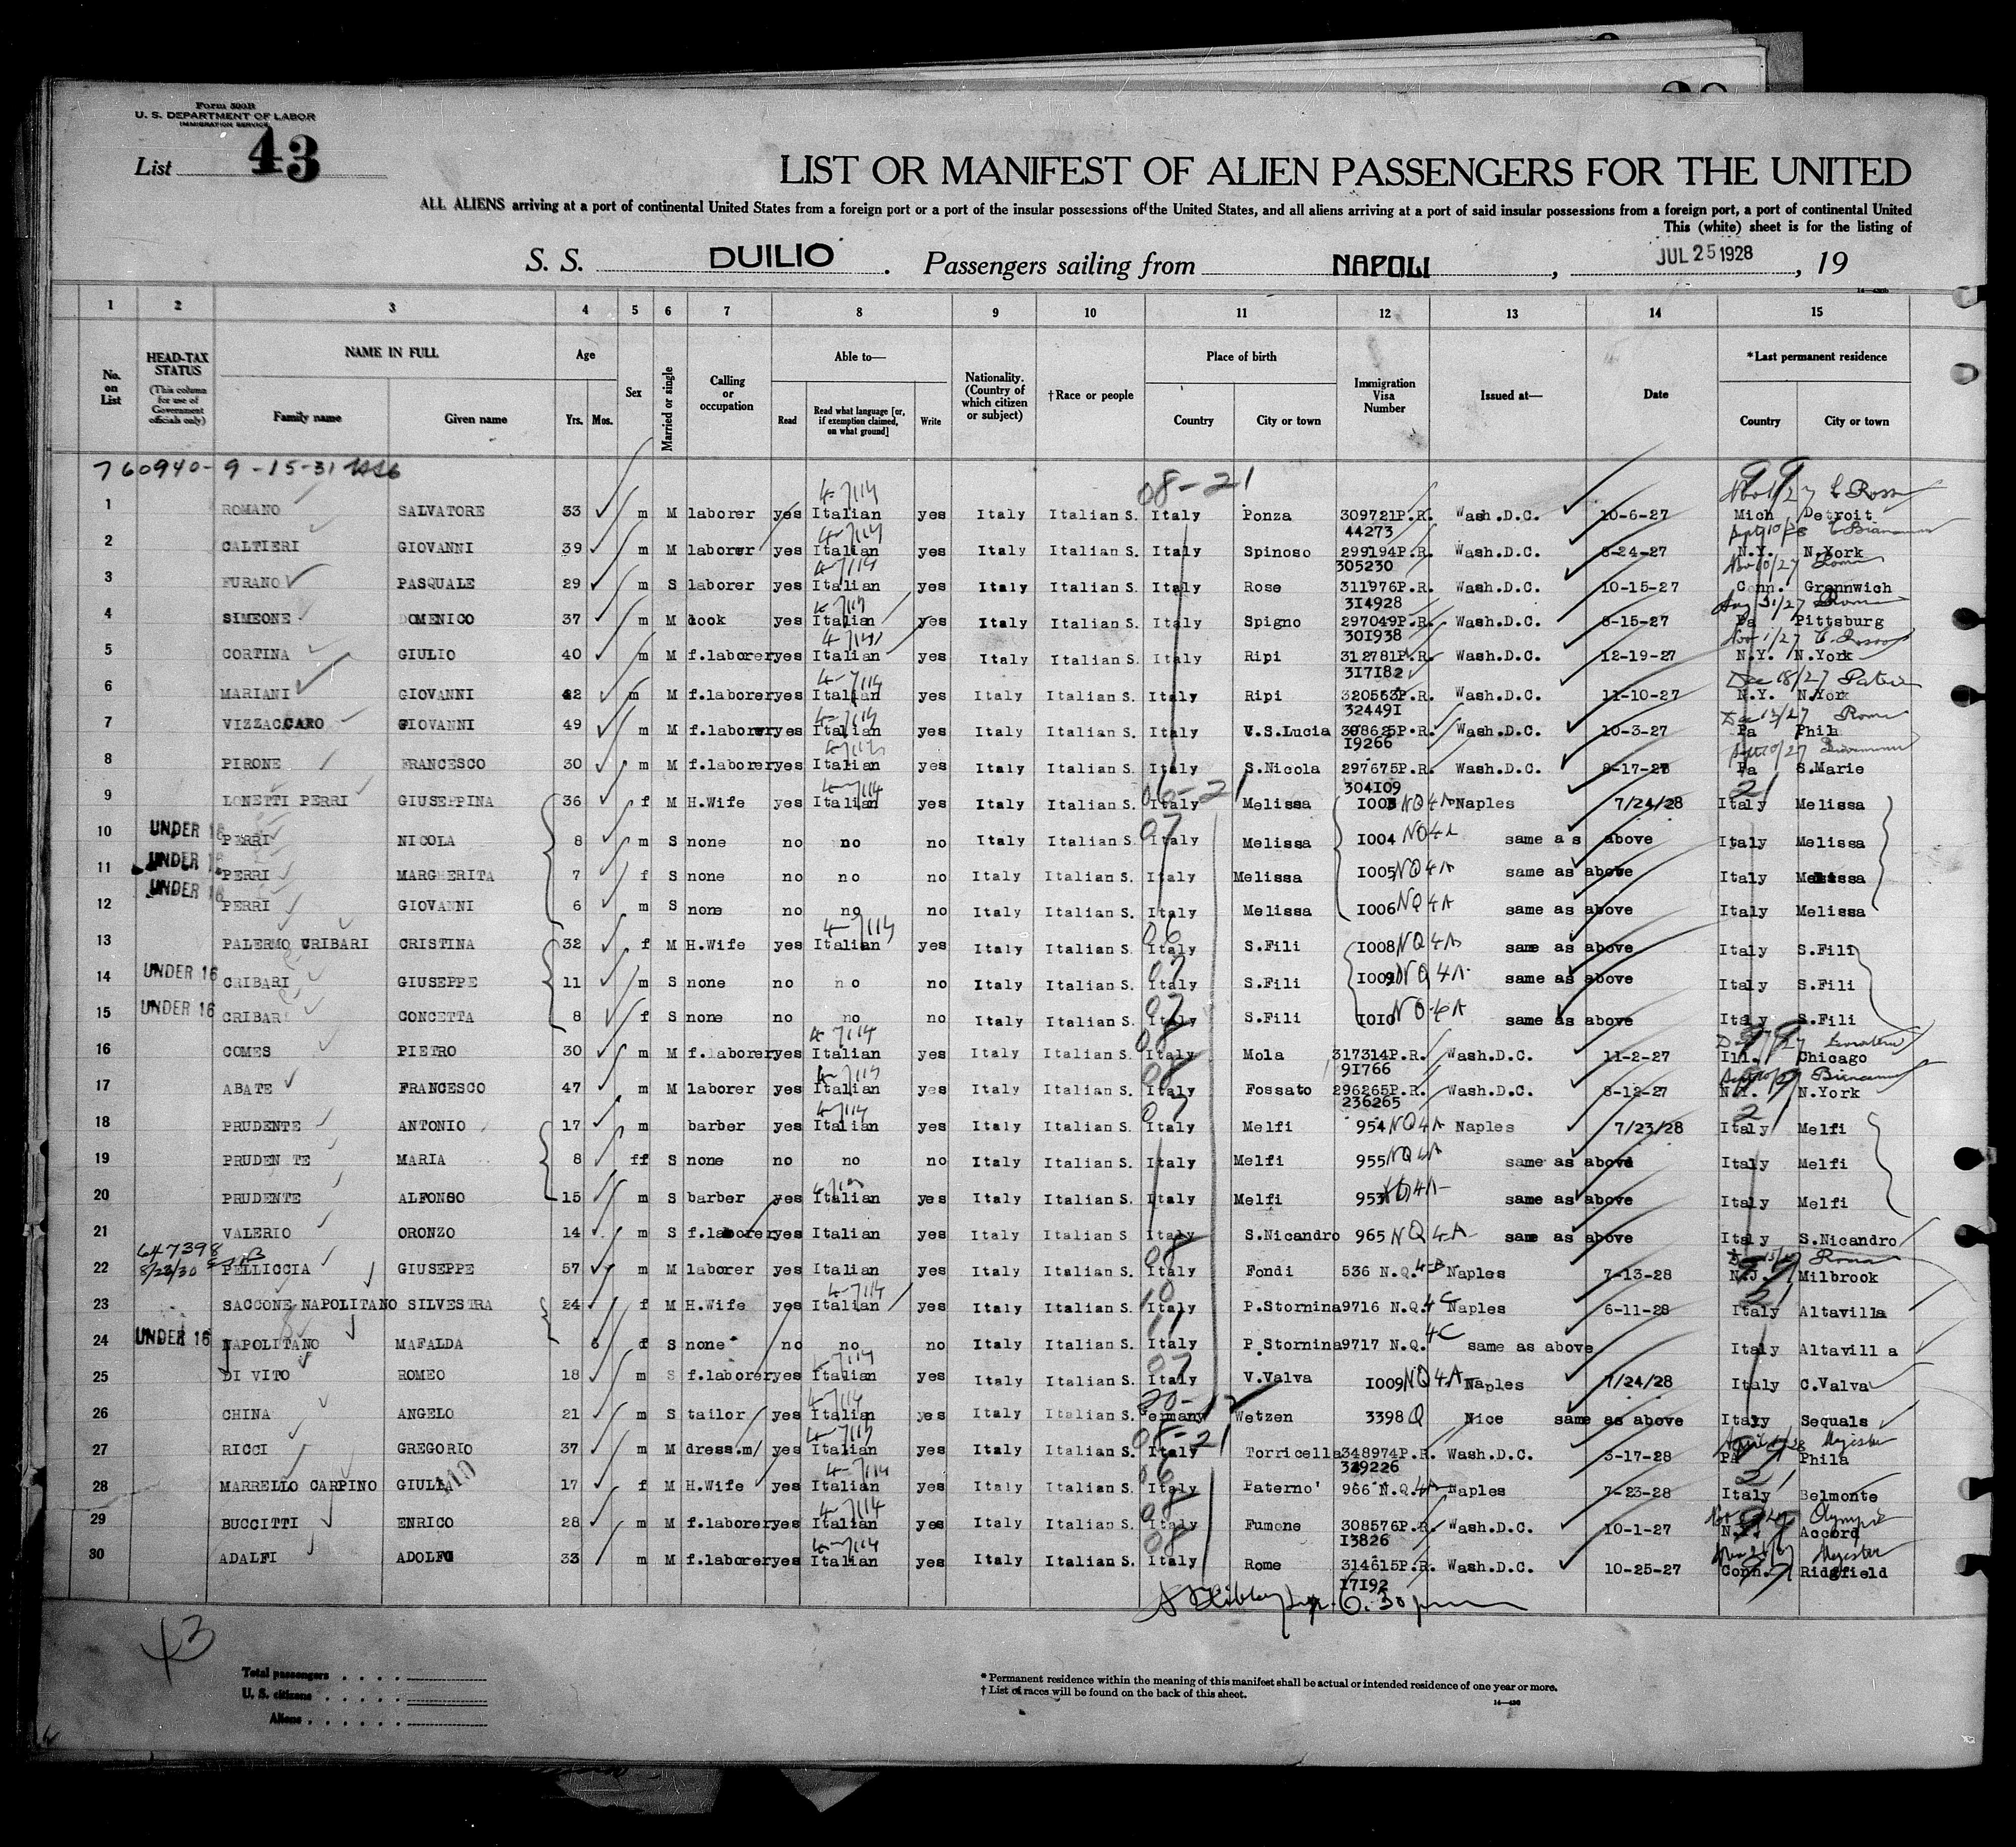 Form 500B
U. S. DEPARTMENT OF LABOR
IMMIGRATION SERVICE
List 43
LIST OR MANIFEST OF ALIEN PASSENGERS FOR THE UNITED
ALL ALIENS arriving at a port of continental United States from a foreign port or a port of the insular possessions of the United States, and all aliens arriving at a port of said insular possessions from a foreign port, a port of continental United
This (white) sheet is for the listing of
S. S. DUILIO . Passengers sailing from NAPOLI , JUL 25 1928 , 19
1 2 3 4 5 6 7 8 9 10 11 12 13 14 15
No. on List HEAD-TAX STATUS (This column for use of Government officials only) NAME IN FULL Family name Given name Age Yrs. Mos. Sex Married or single Calling or occupation Able to— Read Read what language [or, if exemption claimed, on what ground] Write Nationality. (Country of which citizen or subject) †Race or people Place of birth Country City or town Immigration Visa Number Issued at— Date *Last permanent residence Country City or town
760940- 9-15-31
08-21 99
1 ROMANO SALVATORE 33 m M laborer yes Italian yes Italy Italian S. Italy Ponza 309721P.R. 44273 Wash.D.C. 10-6-27 Mich Detroit
2 CALTIERI GIOVANNI 39 m M laborer yes Italian yes Italy Italian S. Italy Spinoso 299194P.R. 305230 Wash.D.C. 8-24-27 N.Y. N.York
3 FURANO PASQUALE 29 m S laborer yes Italian yes Italy Italian S. Italy Rose 311976P.R. 314928 Wash.D.C. 10-15-27 Conn. Grennwich
4 SIMEONE DOMENICO 37 m M cook yes Italian yes Italy Italian S. Italy Spigno 297049P.R. 301938 Wash.D.C. 8-15-27 Pa Pittsburg
5 CORTINA GIULIO 40 m M f.laborer yes Italian yes Italy Italian S. Italy Ripi 312781P.R. 317182 Wash.D.C. 12-19-27 N.Y. N.York
6 MARIANI GIOVANNI 42 m M f.laborer yes Italian yes Italy Italian S. Italy Ripi 320563P.R. 324491 Wash.D.C. 11-10-27 N.Y. N.York
7 VIZZACCARO GIOVANNI 49 m M f.laborer yes Italian yes Italy Italian S. Italy V.S.Lucia 308625P.R. 19266 Wash.D.C. 10-3-27 Pa Phila
8 PIRONE FRANCESCO 30 m M f.laborer yes Italian yes Italy Italian S. Italy S.Nicola 297675P.R. 304109 Wash.D.C. 8-17-28 Pa S.Marie
9 LONETTI PERRI GIUSEPPINA 36 f M H.Wife yes Italian yes Italy Italian S. Italy Melissa 1003 NQ4A Naples 7/24/28 Italy Melissa
10 UNDER 16 PERRI NICOLA 8 m S none no no no Italy Italian S. Italy Melissa 1004 NQ4A same as above Italy Melissa
11 UNDER 16 PERRI MARGHERITA 7 f S none no no no Italy Italian S. Italy Melissa 1005 NQ4A same as above Italy Melissa
12 UNDER 16 PERRI GIOVANNI 6 m S none no no no Italy Italian S. Italy Melissa 1006 NQ4A same as above Italy Melissa
13 PALERMO CRIBARI CRISTINA 32 f M H.Wife yes Italian yes Italy Italian S. Italy S.Fili 1008 NQ4A same as above Italy S.Fili
14 UNDER 16 CRIBARI GIUSEPPE 11 m S none no no no Italy Italian S. Italy S.Fili 1009 NQ4A same as above Italy S.Fili
15 UNDER 16 CRIBARI CONCETTA 8 f S none no no no Italy Italian S. Italy S.Fili 1010 NQ4A same as above Italy S.Fili
16 COMES PIETRO 30 m M f.laborer yes Italian yes Italy Italian S. Italy Mola 317314P.R. 91766 Wash.D.C. 11-2-27 Ill. Chicago
17 ABATE FRANCESCO 47 m M laborer yes Italian yes Italy Italian S. Italy Fossato 296265P.R. 236265 Wash.D.C. 8-12-27 N.Y. N.York
18 PRUDENTE ANTONIO 17 m barber yes Italian yes Italy Italian S. Italy Melfi 954 NQ4A Naples 7/23/28 Italy Melfi
19 PRUDENTE MARIA 8 ff S none no no no Italy Italian S. Italy Melfi 955 NQ4A same as above Italy Melfi
20 PRUDENTE ALFONSO 15 m S barber yes Italian yes Italy Italian S. Italy Melfi 953 same as above Italy Melfi
21 VALERIO ORONZO 14 m S f.laborer yes Italian yes Italy Italian S. Italy S.Nicandro 965 NQ4A same as above Italy S.Nicandro
647398
8/23/30
22 PELLICCIA GIUSEPPE 57 m M laborer yes Italian yes Italy Italian S. Italy Fondi 536 N.Q.4-B Naples 7-13-28 N.J. Milbrook
23 SACCONE NAPOLITANO SILVESTRA 24 f M H.Wife yes Italian yes Italy Italian S. Italy P.Stornina 9716 N.Q.4C Naples 6-11-28 Italy Altavilla
24 UNDER 16 NAPOLITANO MAFALDA 6 f S none no no no Italy Italian S. Italy P.Stornina 9717 N.Q.4C same as above Italy Altavilla
25 DI VITO ROMEO 18 m S f.laborer yes Italian yes Italy Italian S. Italy V.Valva 1009 NQ4A Naples 7/24/28 Italy C.Valva
26 CHINA ANGELO 21 m S tailor yes Italian yes Italy Italian S. Germany Wetzen 3398 Q Nice same as above Italy Sequals
27 RICCI GREGORIO 37 m M dress.m/ yes Italian yes Italy Italian S. Italy Torricella 348974P.R. 329226 Wash.D.C. 3-17-28 Pa Phila
28 MARRELLO CARPINO GIULIA 17 f M H.Wife yes Italian yes Italy Italian S. Italy Paterno' 966 N.Q.4A Naples 7-23-28 Italy Belmonte
29 BUCCITTI ENRICO 28 m M f.laborer yes Italian yes Italy Italian S. Italy Fumone 308576P.R. 13826 Wash.D.C. 10-1-27 N.Y. Accord
30 ADALFI ADOLFO 33 m M f.laborer yes Italian yes Italy Italian S. Italy Rome 314615P.R. 17192 Wash.D.C. 10-25-27 Conn. Ridgfield
6.30 pm
43
Total passengers
U. S. citizens
Aliens
* Permanent residence within the meaning of this manifest shall be actual or intended residence of one year or more.
† List of races will be found on the back of this sheet.